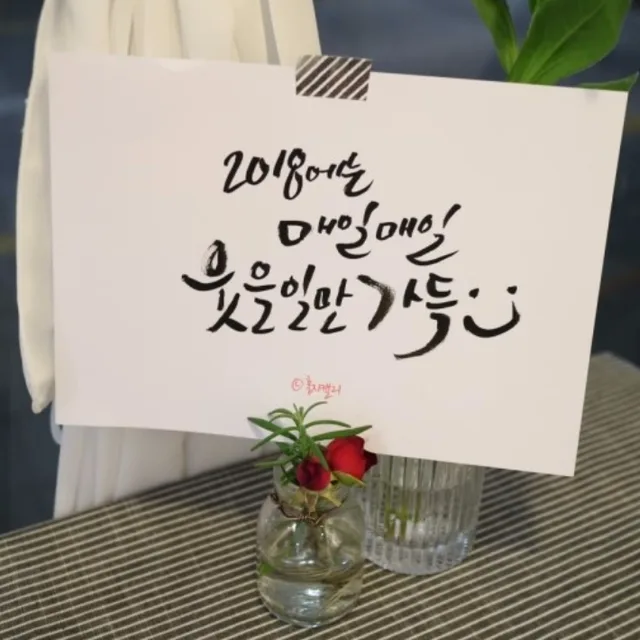 2018에는
매일매일
웃을일만 가득